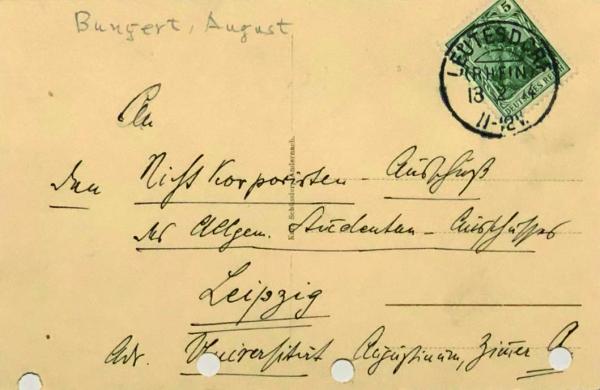 Bungert, August
5
DEUTSCHES REICH
LEUTESDORF
(RHEIN)
13 2
11-12V.
An
den Nicht Korporirten - Ausschuß
des Allgem. Studenten - Ausschusses
Leipzig
Adr. Universität Augusteum, Zimer
Andernach.